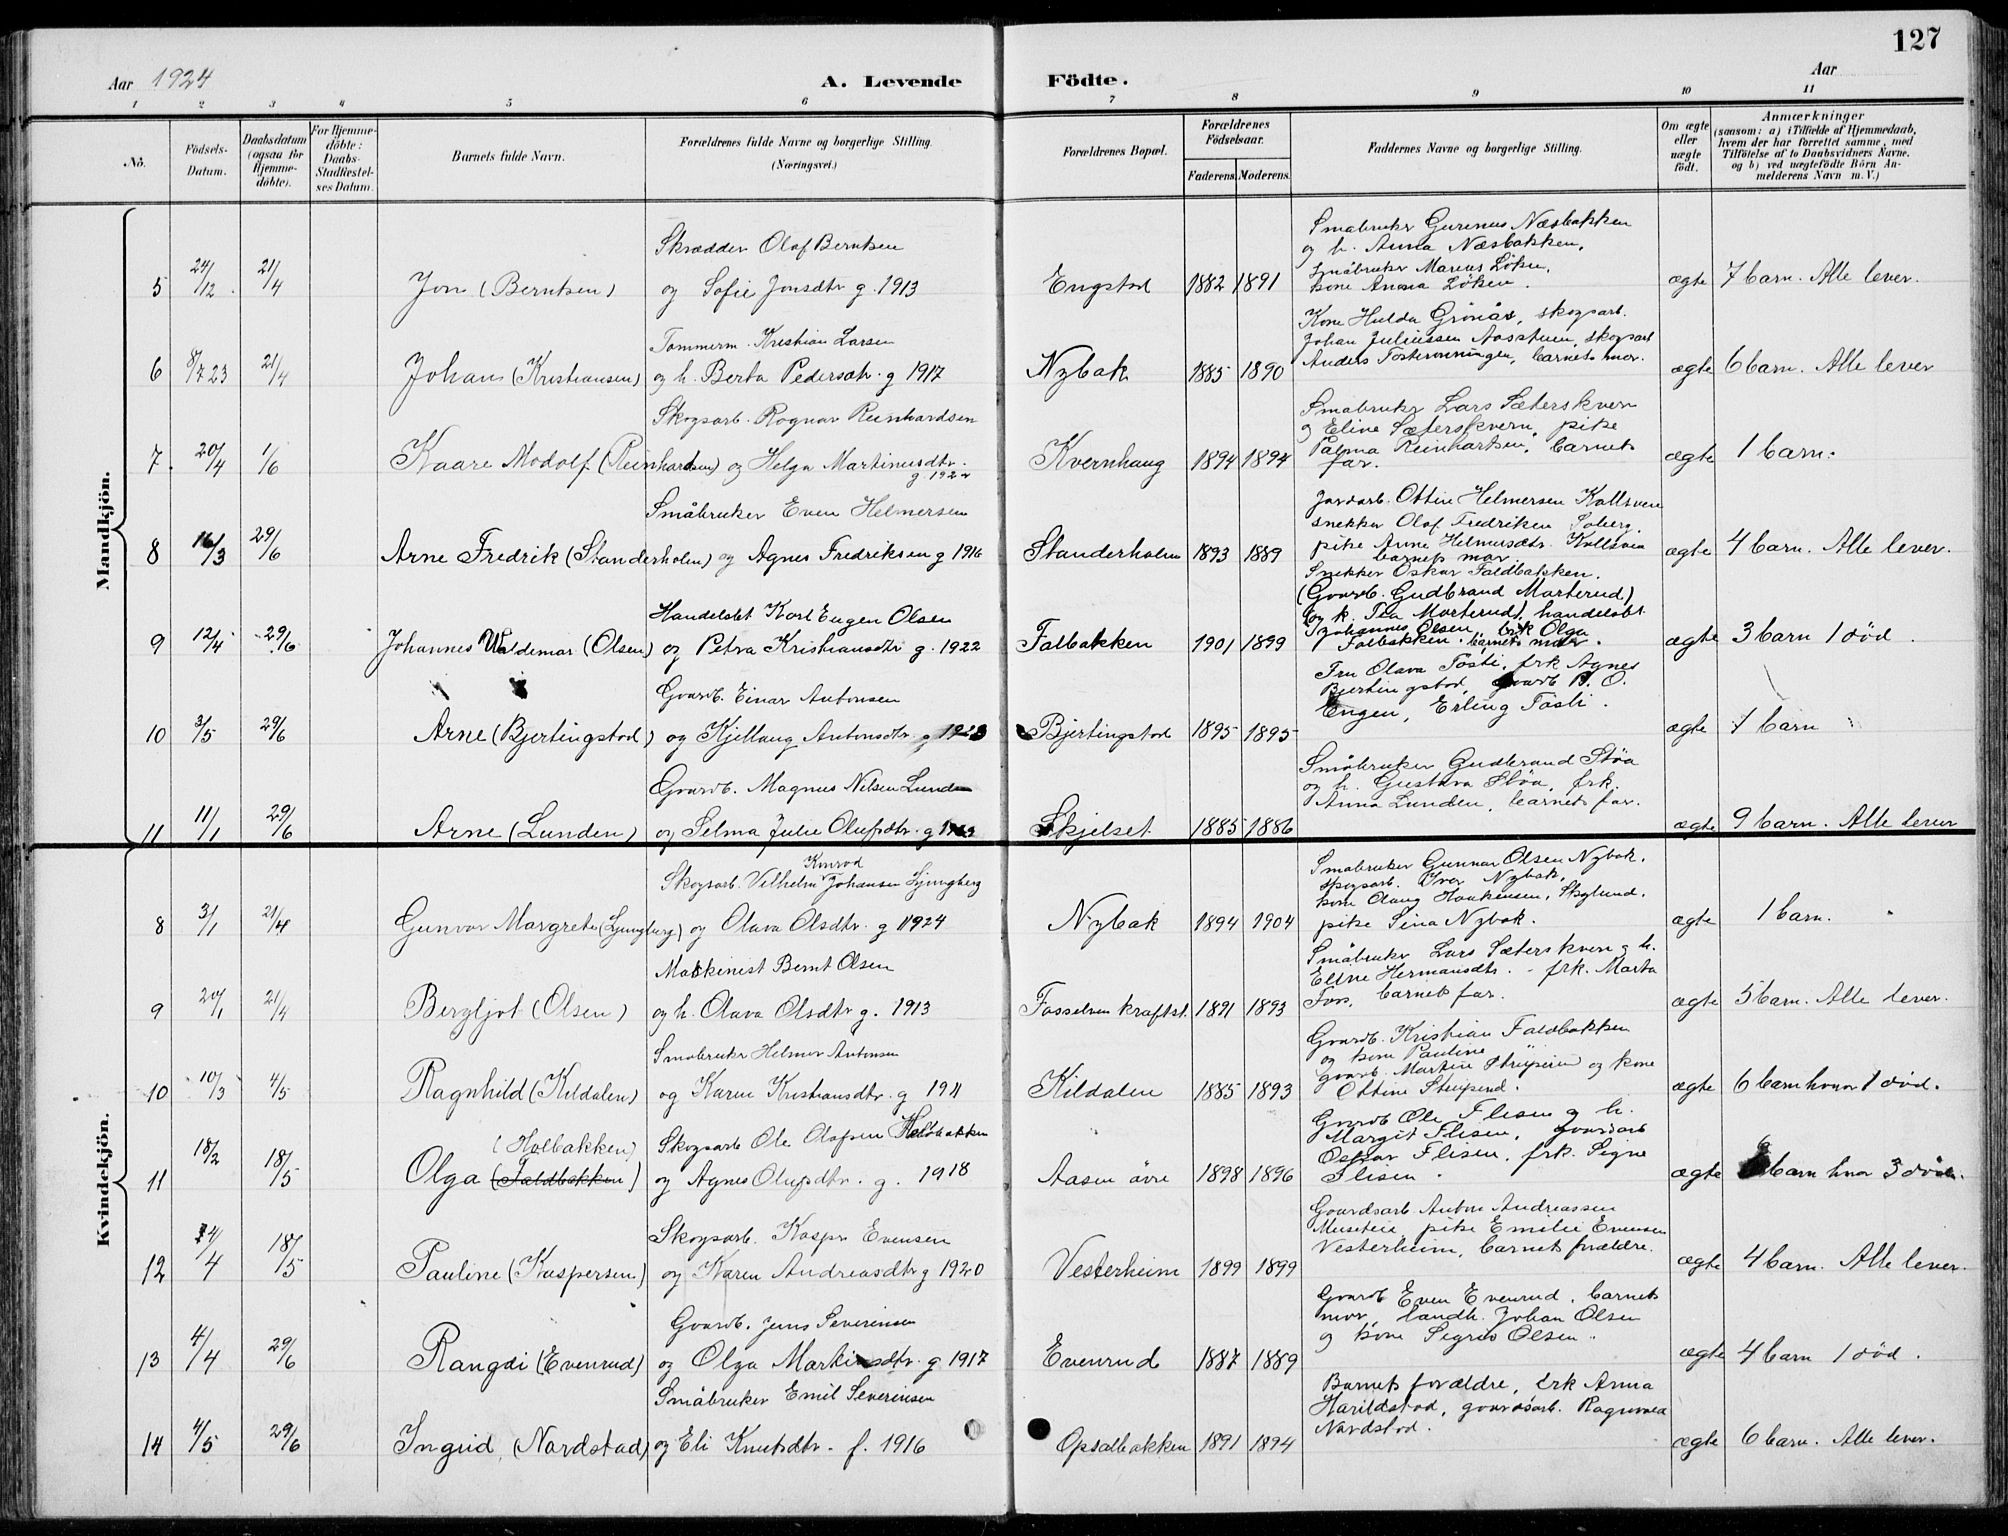 127
Aar 1924
A. Levende Födte.
Aar
1 2 3 4 5 6 7 8 9 10 11
No.
Födsels-Datum.
Daabsdatum (ogsaa for Hjemme-döbte).
For Hjemme-döbte: Daabs-Stadfæstel-ses Datum.
Barnets fulde Navn.
Forældrenes fulde Navne og borgerlige Stilling. (Næringsvei.)
Forældrenes Bopæl.
Forældrenes Födselsaar.
Faderens. Moderens.
Faddernes Navne og borgerlige Stilling.
Om ægte eller uægte födt.
Anmærkninger
(saasom: a) i Tilfælde af Hjemmedaab,
hvem der har forrettet samme, med
Tilföielse af to Daabsvidners Navne,
og b) ved uægtefödte Börn An-
melderens Navn m. V.)
Mandkjön.
Skrædder Olaf Berntsen
5 24/12 21/4 Jon (Berntsen) og Sofie Jonsdtr g. 1913 Engstad 1882 1891 ægte 7 barn. Alle lever.
Smabruker Gurenus Næsbakken
og h. Anna Næsbakken,
Småbruker Marius Löken,
kone Anna Löken.
Tømmerm. Kristian Larsen
6 8/7 23 21/4 Johan (Kristiansen) og h. Berta Pedersdtr. g 1917 Nybak 1885 1890 ægte 6 barn. Alle lever
Kone Hulda Grönås, skogsarb.
Johan Juliussen Aasstuen, skogsarb
Anders Fosterenningen, barnets mor.
Skogsarb. Ragnar Reinhardsen
7. 20/4 1/6 Kaare Modolf (Reinhardsen) og Helga Martinusdtr. g. 1922 Kvernhaug 1894 1894 ægte 1 barn.
Smabruker Lars Sæterskvern
og Eline Sæterskvern, pike
Palma Reinhartsen, barnets
far.
Småbruker Even Helmersen
8 16/3 29/6 Arne Fredrik (Standerholen) og Agnes Fredriksen g 1916 Standerholen 1893 1889 ægte 4 barn. Alle lever.
Jordarb. Ottin Helmersen Kollsveen
snekker Olaf Fredriken Soberg,
pike Anne Helmersdtr. Kollsveen
barnets mor
Handelsbet Karl Eugen Olsen
9 12/4 29/6 Johannes Waldemar (Olsen) og Petra Kristiansdtr g. 1922 Falbakken 1901 1899 ægte 3 barn 1 död.
Snekker Oskar Faldbakken.
(Gaardb. Gudbrand Marterud)
og k. Tea Marterud) handelsbt
Johannes Olsen, frk Olga
Falbakken. barnets moder.
Gaardb. Einar Antonsen
10 3/5 29/6 Arne (Bjertingstad) og Kjellaug Antonsdtr. g 1923 Bjertingstad 1895 1895 ægte 1 barn
Fru Olava Fosli, frk Agnes
Bjertingstad, gaardb B. O.
Engen, Erling Fosli.
Gaardb. Magnus Nilsen Lunden
11 11/1 29/6 Arne (Lunden) og Selma Julie Olufsdtr. g 1909 Skjelset 1885 1886 ægte 9 barn. Alle lever
Småbruker Gudbrand Stöa
og h. Gustava Stöa, frk.
Anna Lunden, barnets far.
Kvindekjön.
Skogsarb. Vilhelm Konrad Johansen Ljungberg
8 3/1 21/4 Gunvor Margrete (Ljungberg) og Olava Olsdtr. g 1924 Nybak 1894 1904 ægte 1 barn.
Smabruker Gunnar Olsen Nybak,
skogsarb. Iver Nybak,
kone Olaug Haakensen, Skylund,
pike Sina Nybak.
Maskinist Bernt Olsen
9 20/1 21/4 Bergljot (Olsen) og h. Olava Olsdtr g. 1913 Fosselven kraftst. 1891 1893 ægte 5 barn. Alle lever.
Småbruker Lars Sæterskvern g h.
Eline Hermansdtr. - frk. Marta
Foss, barnets far.
Smabruker Helmer Antonsen
10 10/3 4/5 Ragnhild (Kildalen) og Karen Kristiansdtr. g 1911 Kildalen 1885 1893 ægte 6 barn hvor 1 død.
Gaardb. Kristian Faldbakken
og kone Pauline
gaarb. Martin Strupsem og kone
Ottine Strupsend.
Skogsarb Ole Olafsen Holbakken
11 18/2 18/5 Olga (Faldbakken) (Holbakken) og Agnes Olufsdtr. g. 1918 Aasen övre 1898 1896 ægte barn hvor 3 döde.
Gaardb Ole Flisen g h.
Margit Flisen, gaardsarb
Oskar Flisen, frk. Signe
Flisen.
Skogsarb. Kaspr Evensen
12 24/4 18/5 Pauline (Kaspersen) og Karen Andreasdtr g 1920 Vesterheim 1899 1899 ægte 4 barn. Alle lever.
Gaardsarb. Anton Andreassen
Museteie pike Emilie Evensen
Vesterheim, barnets forældre.
Gaardb. Jens Severinsen
13 4/4 29/6 Rangdi (Evenrud) og Olga Martinsdtr. g 1917 Evenrud 1887 1889 ægte 4 barn 1 död.
Gaardb Even Evenrud, barnets
mor, Handl. Johan Olsen
og kone Sigrid Olsen.
Småbruker Emil Severinsen
14 4/5 29/6 Ingrid (Nordstad) og Eli Knutsdtr. f. 1916 Opsalbakken 1891 1894 ægte 6 barn. Alle lever.
Barnets forældre, frk Anna
Harildstad, gaardsarb. Ragnvald
Nordstad.